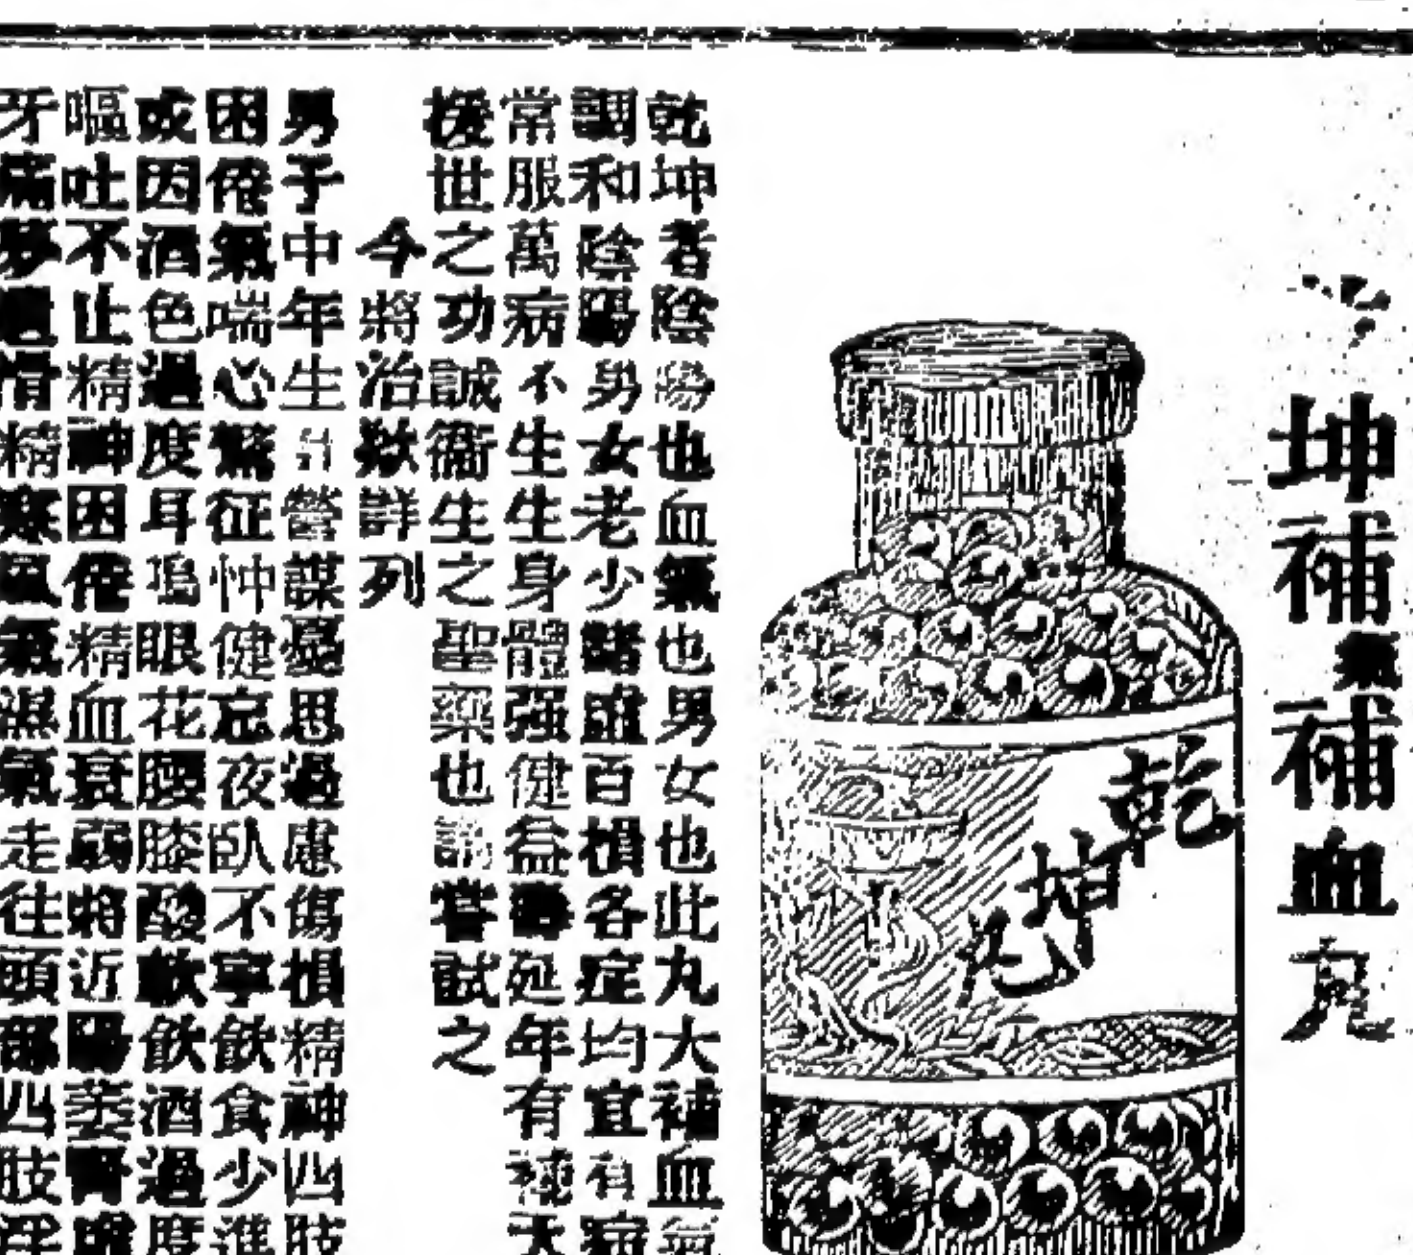 坤補氣補血丸
乾坤丸
乾坤者陰陽也血氣也男女也此丸大補血氣
調和陰陽男女老少諸虛百損各症均宜有病
常服萬病不生生身體强健益壽延年有補天
援世之功誠衞生之聖藥也請嘗試之
今將治欵詳列
男子中年生計營謀憂思過慮傷損精神四肢
困倦氣喘心驚怔忡健忘夜臥不寧飲食少進
或因酒色過度耳鳴眼花腰膝酸軟飲酒過度
嘔吐不止精神困倦精血衰弱將近陽萎腎虛
牙痛夢遺滑精寒風氣濕氣走往頭部四肢浮